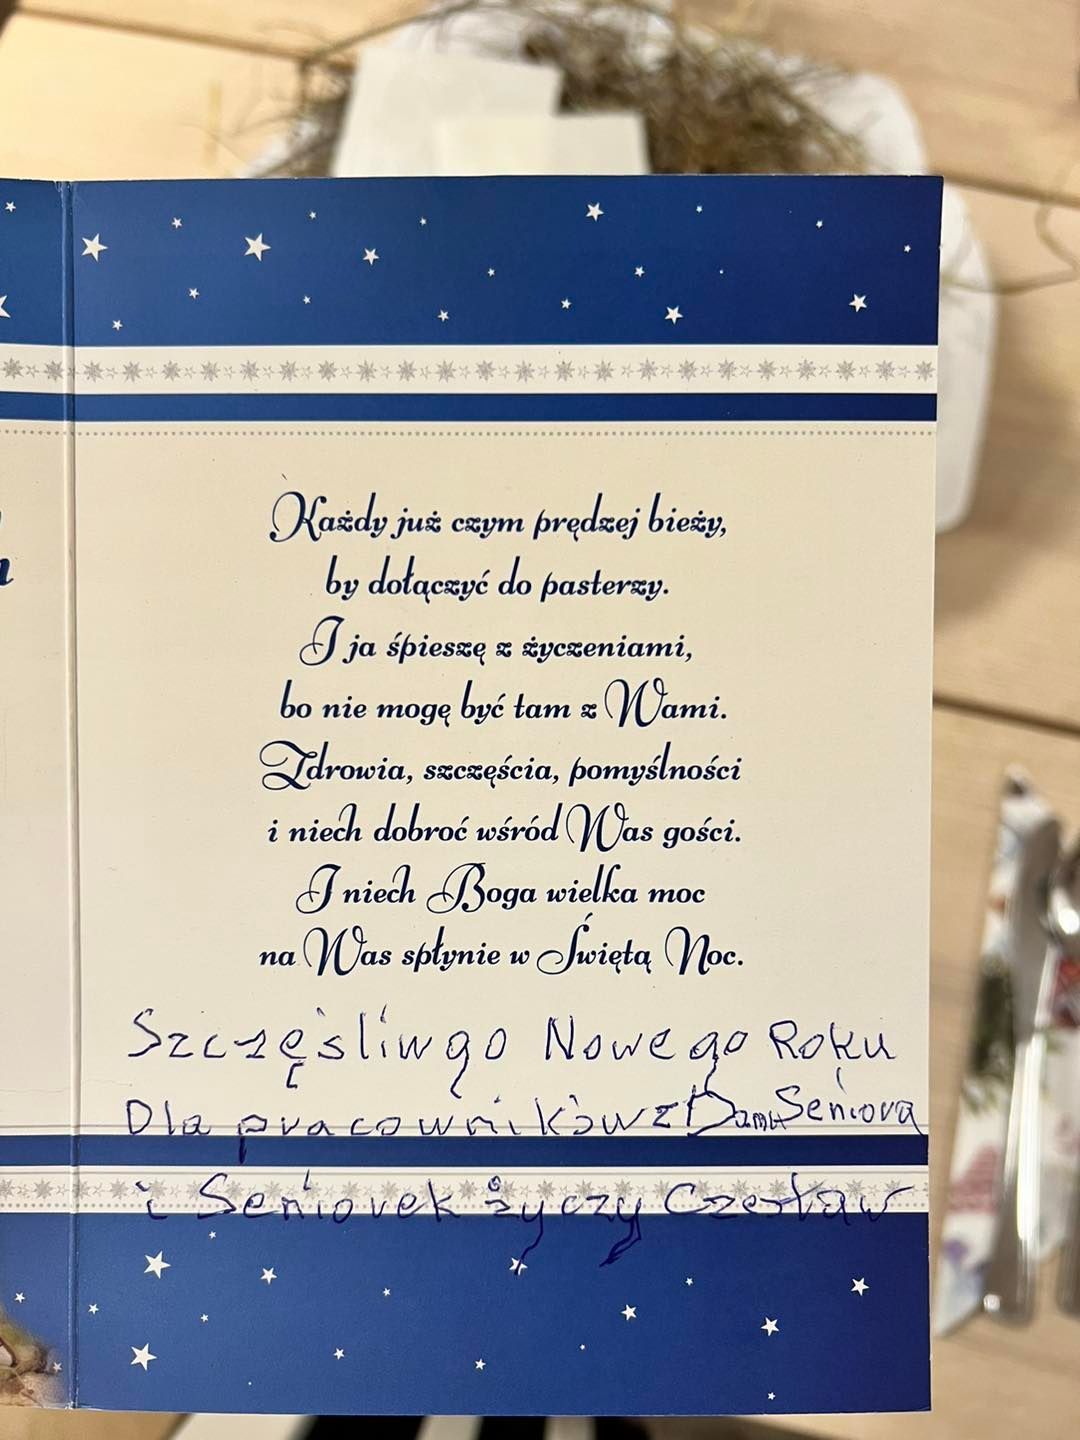 Każdy już czym prędzej bieży,
by dołączyć do pasterzy.
I ja śpieszę z życzeniami,
bo nie mogę być tam z Wami.
Zdrowia, szczęścia, pomyślności
i niech dobroć wśród Was gości.
I niech Boga wielka moc
na Was spłynie w Świętą Noc.
Szczęśliwgo Nowego Roku
Dla pracowników z Domu Seńiora
i Seńiorek życzy Czesław